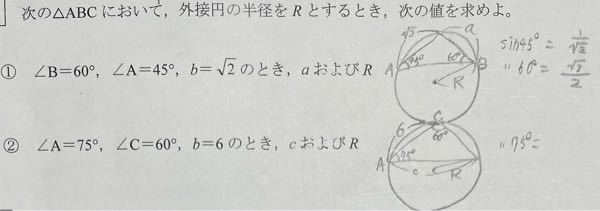 次の△ABCにおいて，外接円の半径をRとするとき，次の値を求めよ。
① ∠B=60°，∠A=45°，b=√2のとき，aおよびR
√2 a
A 45° 60° B
R
sin45°= 1/√2
〃 60°= √3/2
② ∠A=75°，∠C=60°，b=6のとき，cおよびR
6 C
60°
A 75°
c R
〃 75°=